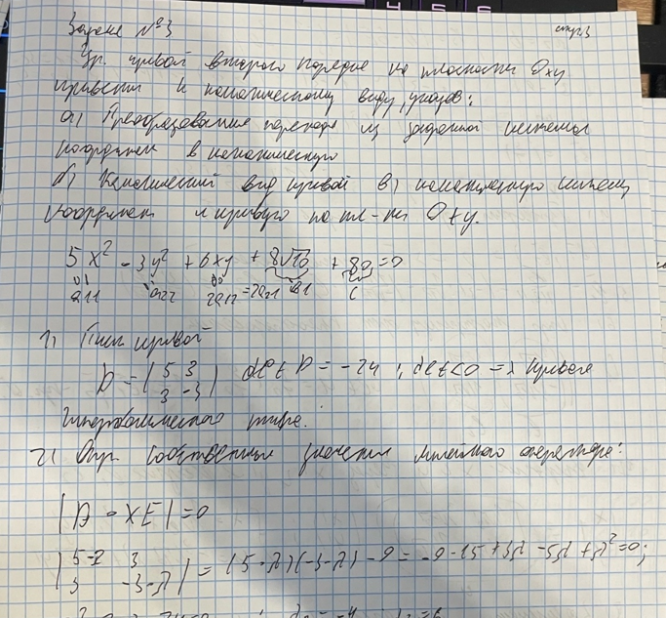 Задача №3 стр.3
Ур. кривой второго порядка на плоскости Oxy
привести к каноническому виду, указав:
а) Преобразование перехода из заданной системы
координат в каноническую
б) Канонический вид кривой в) каноническую систему
координат и кривую на пл-ти Oxy.
5x² - 3y² + 6xy + 8√10 + 80 = 0
a11 a22 2a12=2a21 в1 c
1) Тип кривой
D = |5 3| det D = -24 ; det<0 => кривая
3 -3
гиперболического типа.
2) Опр. собственные значения линейного оператора:
|D - λE| = 0
|5-λ 3| = (5-λ)(-3-λ) - 9 = -9-15+3λ-5λ+λ²=0;
3 -3-λ